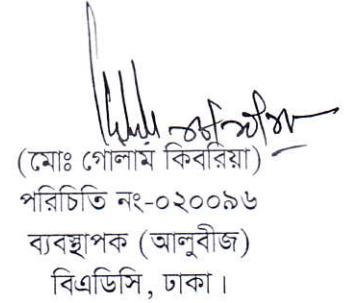 (মোঃ গোলাম কিবরিয়া)
পরিচিতি নং-০২০০৯৬
ব্যবস্থাপক (আলুবীজ)
বিএডিসি, ঢাকা।